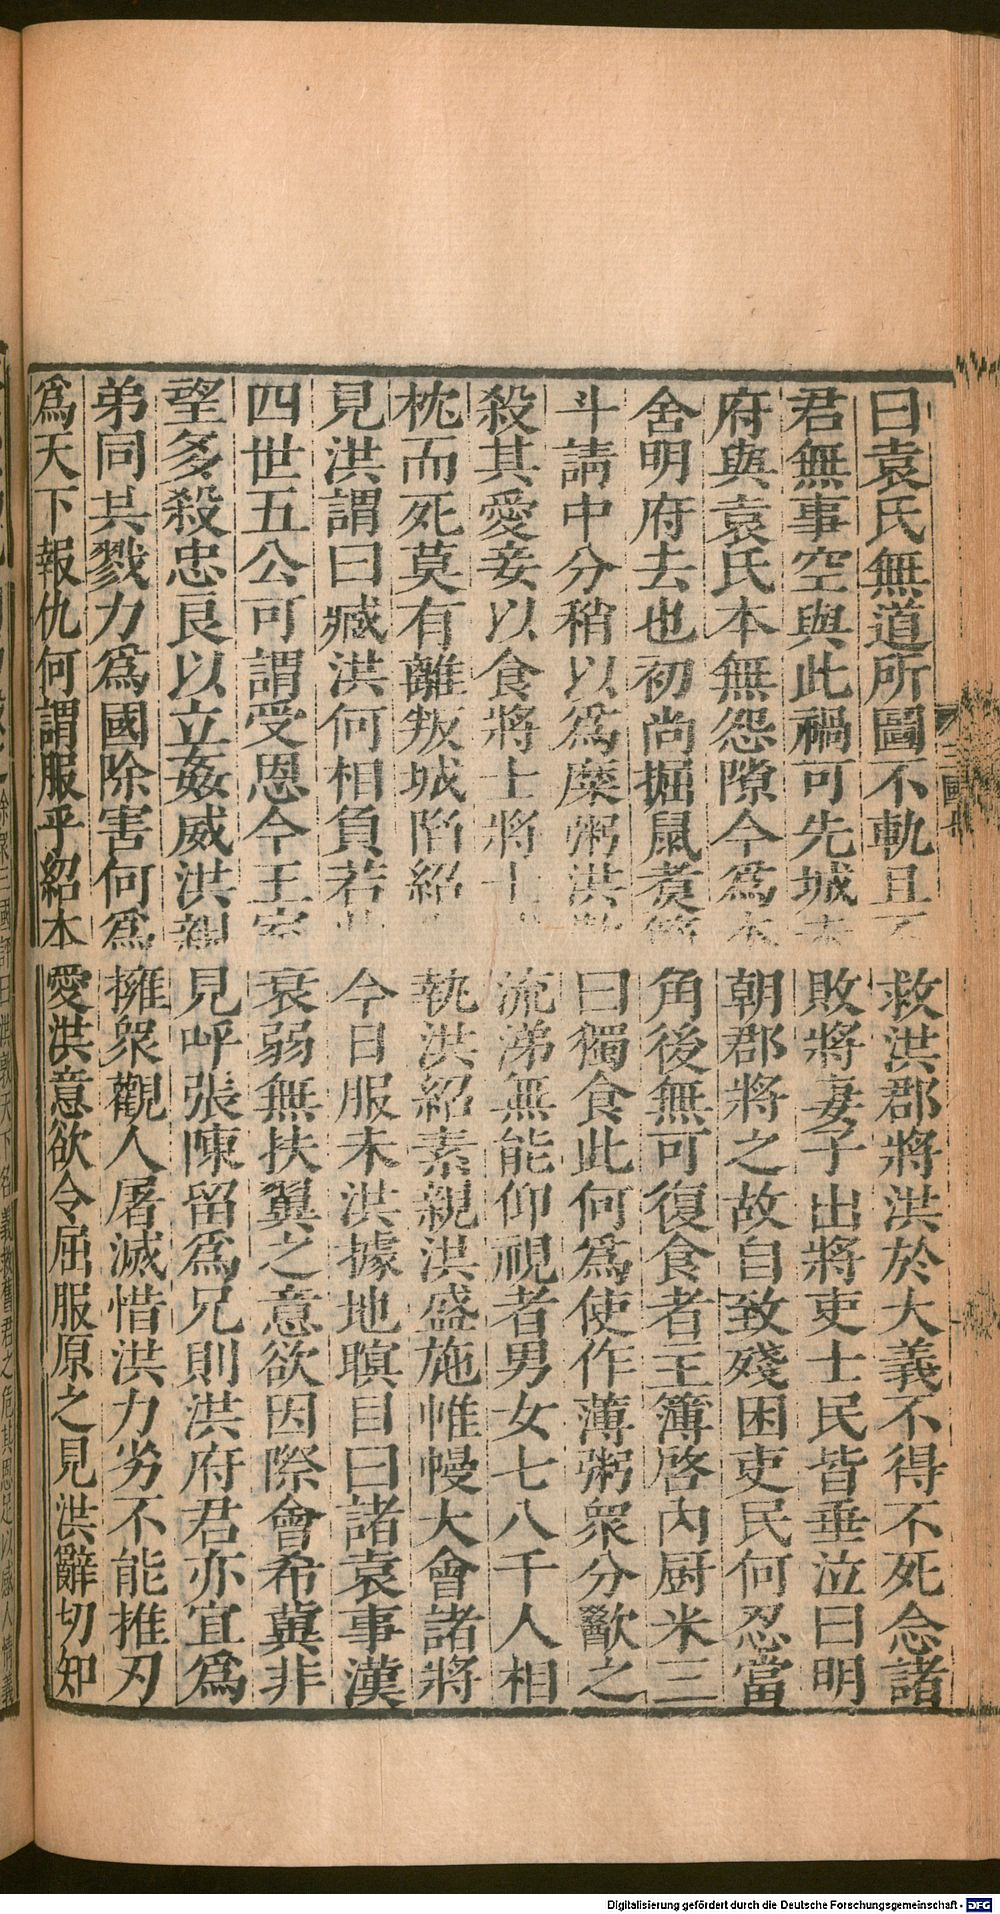 三國
曰袁氏無道所圖不軌且不救洪郡將洪於大義不得不死念諸
君無事空與此禍可先城未敗將妻子出將吏士民皆垂泣曰明
府與袁氏本無怨隙今爲本朝郡將之故自致殘困吏民何忍當
舍明府去也初尚掘鼠煑筋角後無可復食者主簿啓內厨米三
斗請中分稍以爲糜粥洪歎曰獨食此何爲使作薄粥衆分歠之
殺其愛妾以食將士將士流涕無能仰視者男女七八千人相
枕而死莫有離叛城陷紹執洪紹素親洪盛施帷幔大會諸將
見洪謂曰臧洪何相負若此今日服未洪據地瞋目曰諸袁事漢
四世五公可謂受恩今王室衰弱無扶翼之意欲因際會希冀非
望多殺忠良以立姦威洪親見呼張陳留爲兄則洪府君亦宜爲
弟同共戮力爲國除害何爲擁衆觀人屠滅惜洪力劣不能推刃
爲天下報仇何謂服乎紹本愛洪意欲令屈服原之見洪辭切知
徐衆三國評曰洪敦天下名義救舊君之危其恩足以感人情義
Digitalisierung gefördert durch die Deutsche Forschungsgemeinschaft - DFG